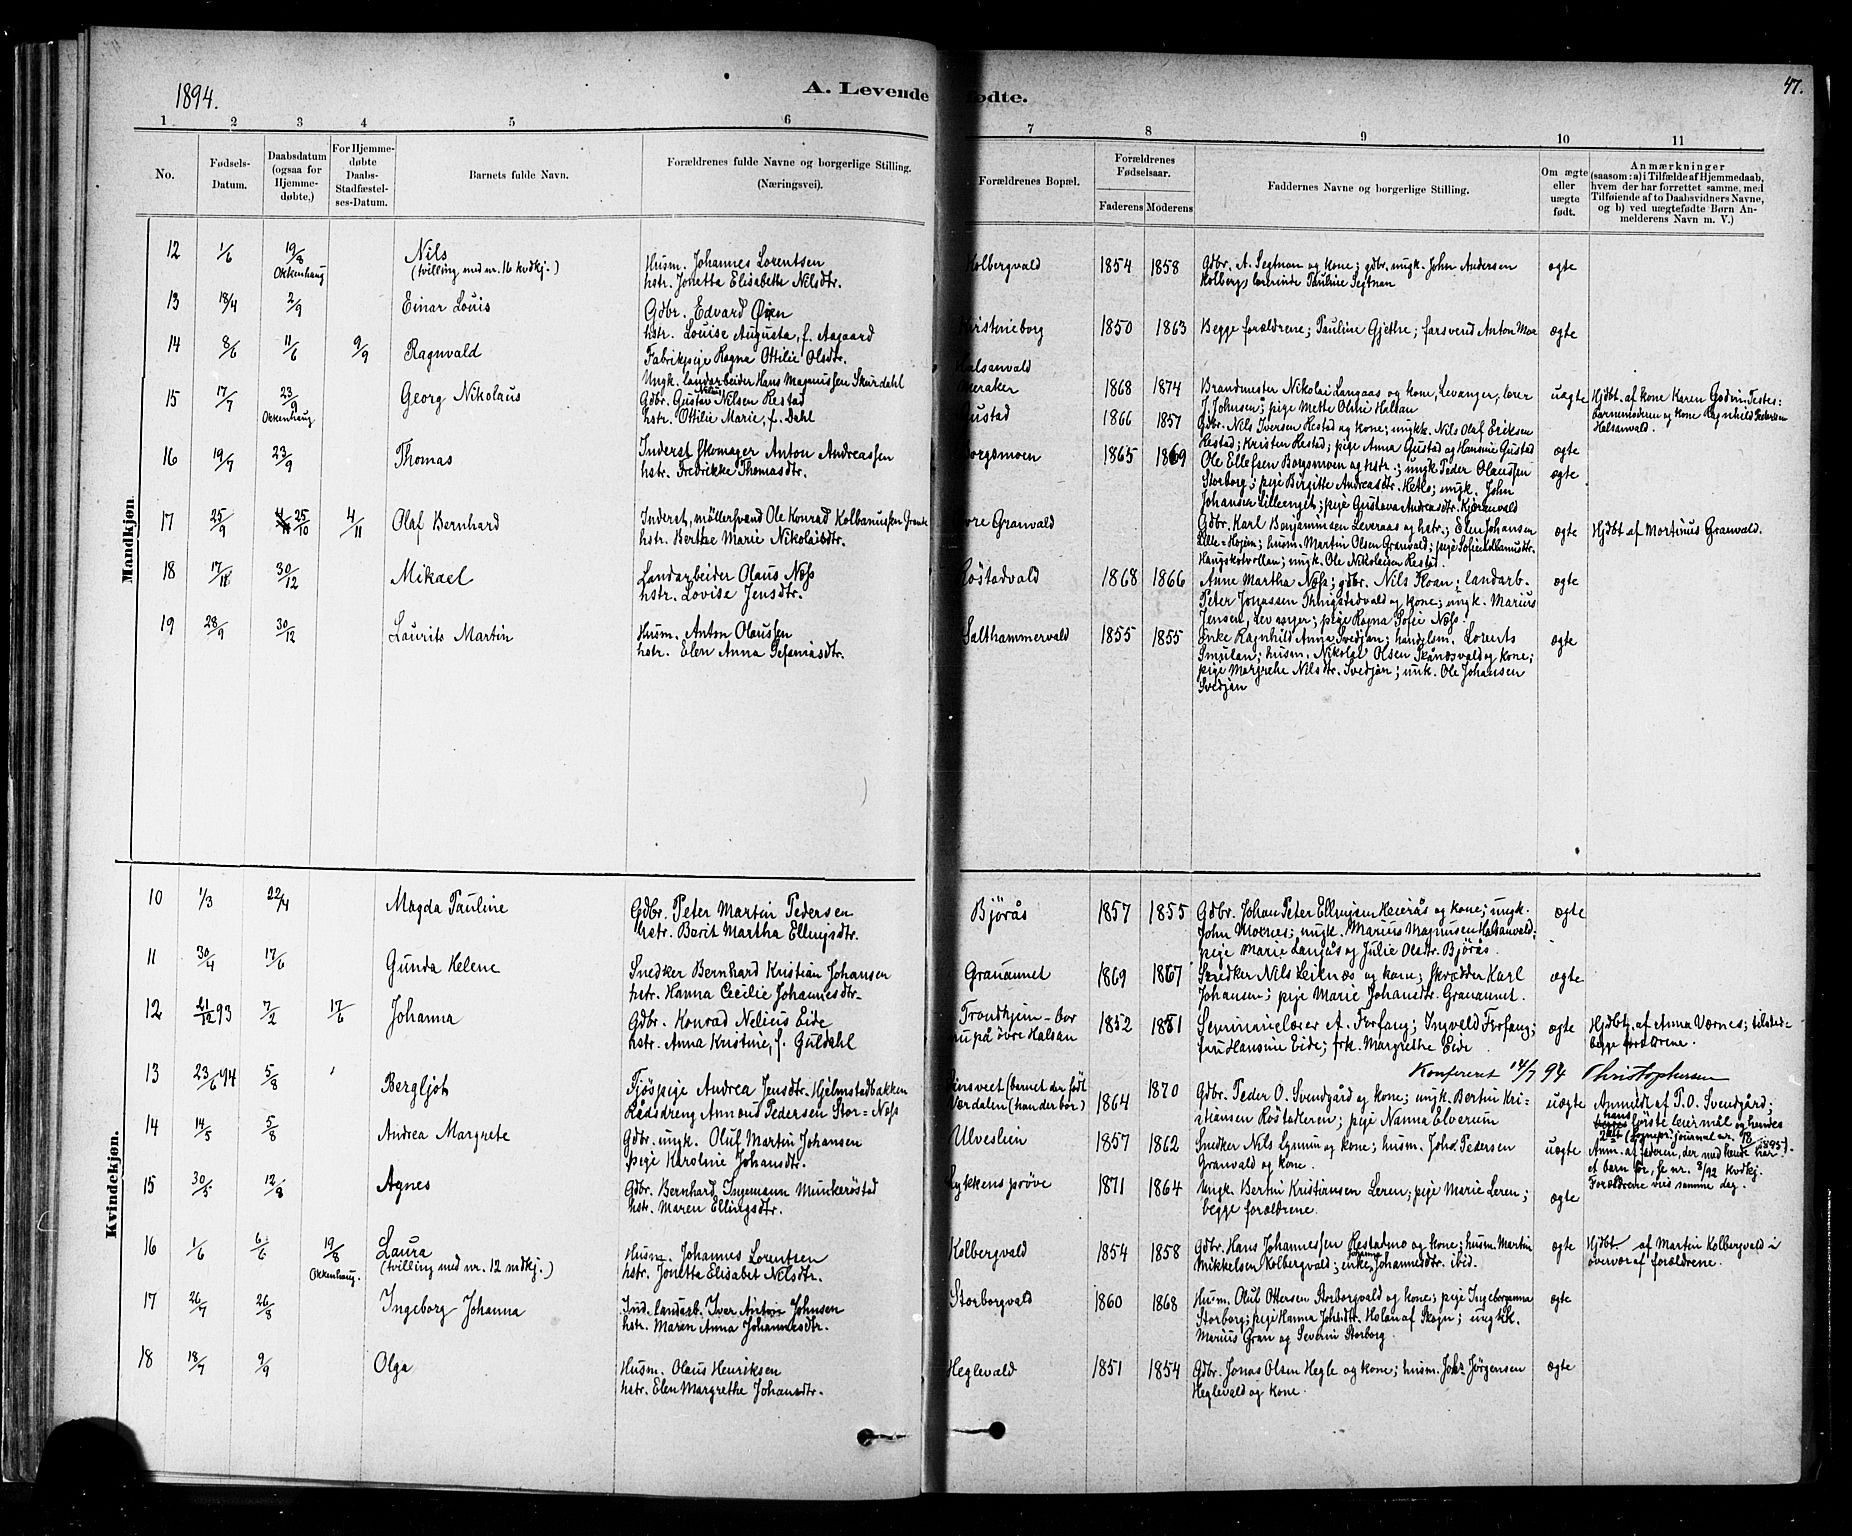 1894.
A. Levende fødte.
47.
1 2 3 4 5 6 7 8 9 10 11
No.
Fødsels-Datum.
Daabsdatum (ogsaa for Hjemme-døbte,)
For Hjemme-døbte Daabs-Stadfæstel-ses-Datum.
Barnets fulde Navn.
Forældrenes fulde Navne og borgerlige Stilling. (Næringsvei).
Forældrenes Bopæl.
Forældrenes Fødselsaar.
Faderens Moderens
Faddernes Navne og borgerlige Stilling.
Om ægte eller uægte født.
Anmærkninger
(saasom: a) i Tilfælde af Hjemmedaab,
hvem der har forrettet samme, med
Tilføiende af to Daabsvidners Navne,
og b) ved uægtefødte Børn An-
melderens Navn m. V.)
Mandkjøn.
12 1/6 19/8 Okkenhaug Nils (tvilling med nr. 16 kvdkj.) Husm. Johannes Lorentsen Kolbergvald 1854 1858 Gdbr. A. Segtnan og kone; gdbr. ungk. John Andersen ægte
hstr. Jonetta Elisabeth Nilsdtr. Kolberg, lærerinde Pauline Segtnan
13 18/4 2/9 Einar Louis Gdbr. Edvard Øien
hstr. Louise Augusta, f. Aagaard Kirstineborg 1850 1863 Begge forældrene; Pauline Gjethe; farsvend Anton Moe ægte
14 8/6 11/6 9/9 Ragnvald Fabrikpige Ragna Ottilie Olsdtr. Halsanvald
Ungk. landarbeider Hans Magnussen Skurdahl Meraker 1868 1874 Brandmester Nikolai Langaas og kone, Levanger, lærer uægte Hjdbt. af kone Karen Godvin. Testes:
J. Johnsen; pige Mette Oline Halsan barnemoderen og kone Ragnhild Pedersen
Halsanvald.
15 17/7 23/9 Okkenhaug Georg Nikolaus Gdbr. Gustav Nilsen Restad Gustad 1866 1857 Gdbr. Nils Iversen Restad og kone; ungk. Nils Olaf Eriksen
hstr. Ottilie Marie, f. Dahl Restad; Kristen Restad; pige Anna Gustad og Hansine Gustad ægte
16 19/7 23/9 Thomas Inderst skomager Anton Andreassen Borgsmoen 1865 1869 Ole Ellefsen Borgsmoen og hstr.; ungk. Peder Olaussen ægte
hstr. Fredrikke Thomasdtr. Storborg; pige Birgitte Andreasdtr. Hetlo; ungk. John
Johansen Lilleenget; pige Gustava Andreasdtr. Kjørenvald
17 25/9 25/10 4/11 Olaf Bernhard Inderst, möllersvend Ole Konrad Kolbanussen Grande Nore Granvald Gdbr. Karl Benjaminsen Leveraas og hstr.; Elen Johansen ægte Hjdbt af Mortinus Granvald.
hstr. Berthe Marie Nikolaisdtr. Lille-Hojem; husm. Martin Olsen Granvald; pige Sofie
ungk. Ole Nikolaisen Restad.
18 17/11 30/12 Mikael Landarbeider Olaus Næss Röstadvald 1868 1866 Anne Martha Næss; gdbr. Nils Floan; landarb. ægte
hstr. Lovise Jensdtr. Peter Jonassen Thingstadvald og kone; ungk. Marius
Jensen, Levanger; pige Ragna Sofie Næss.
19 28/9 30/12 Laurits Martin Husm. Anton Olaussen Salthammervald 1855 1855 Enke Ragnhild Anna Svedjan; handelsm. Lorents ægte
hstr. Elen Anna Sefaniasdtr. Smulan; husm. Nikolai Olsen Skånesvald og kone;
pige Margrethe Nilsdtr. Svedjan; ungk. Ole Johansen
Svedjan
Kvindekjøn.
10 1/3 22/4 Magda Pauline Gdbr. Peter Martin Pedersen Bjørås 1857 1855 Gdbr. Johan Peter Ellingsen Heierås og kone; ungk. ægte
hstr. Berit Martha Ellingsdtr. John Moxnes; ungk. Marius Magnussen Halsanvald;
pige Marie Langås og Julie Olsdtr. Bjørås.
11 30/4 17/6 Gunda Helene Snedker Bernhard Kristian Johansen Granaunet 1869 1867 Snedker Nils Leiknæs og kone; skrædder Karl ægte
hstr. Hanna Cecilie Johannesdtr. Johansen; pige Marie Johansdtr. Granaunet.
12 21/12 93 7/2 17/6 Johanna Gdbr. Konrad Nelius Eide Trondhjem - bor 1852 1851 Seminarielærer A. Forfang; Ingvald Forfang; ægte Hjdbt. af Anna Værnes; tilsted=
hstr. Anna Kristine, f. Guldahl nu på övre Halsan fru Hansine Eide; frk. Margrethe Eide. begge forældrene.
Konfereret 14/7 94 Christophersen
13 23/6 94 5/8 Bergljot Fjøspige Andrea Jensdtr. Hjelmstadbakken Finsveet (barnet der født 1870 Gdbr. Peder O. Svendgård og kone; ungk. Bertin Kri- uægte Anmeldt af P. O. Svendgård;
Rådsdreng Amund Pedersen Stor-Næss Værdalen (han der bor) 1864 stiansen Röstadleren; pige Nanna Elverum hans 1ste leiermål og hendes
2det (sognepr. journal nr. 78/1895).
14 14/5 5/8 Andrea Margrete Gdbr. ungk. Oluf Martin Johansen Ulveslien 1857 1862 Snedker Nils Lynum og kone; husm. Johs. Pedersen uægte Anm. af faderen, der med hende har
pige Karoline Johansdtr. Granvald og kone. et barn för, se nr. 8/92 kvdkj.
Forældrene vies samme dag.
15 30/5 12/8 Agnes Gdbr. Bernhard Ingemann Munkeröstad Lykkens pröve 1871 1864 Ungk. Bertin Kristiansen Leren; pige Marie Leren; ægte
hstr. Maren Ellingsdtr. begge forældrene.
16 1/6 6/6 19/8 Okkenhaug. Laura (tvilling med nr. 12 mdkj.) Husm. Johannes Lorentsen Kolbergvald 1854 1858 Gdbr. Hans Johannessen Restadmo og kone; husm. Martin ægte Hjdbt. af Martin Kolbergvald i
hstr. Jonetta Elisabet Nilsdtr. Mikkelsen Kolbergvald; enke Johanna Johannesdtr. ibid. overvær af forældrene.
17 26/7 26/8 Ingeborg Johanna Ind. landarb. Iver Anton Johnsen Storborgvald 1860 1868 Husm. Oluf Ottersen Storborgvald og kone; pige Ingeboranna ægte
hstr. Maren Anna Johannesdtr. Storborg; pige Hanna Johsdtr. Holan af Skogn; ungkk.
Marius Gran og Severin Storborg.
18 18/7 9/9 Olga Husm. Olaus Henriksen Heglevald 1851 1854 Gdbr. Jonas Olsen Hegle og kone; husm. Johs. Jörgensen ægte
hstr. Elen Margrethe Johansdtr. Heglevald og kone.